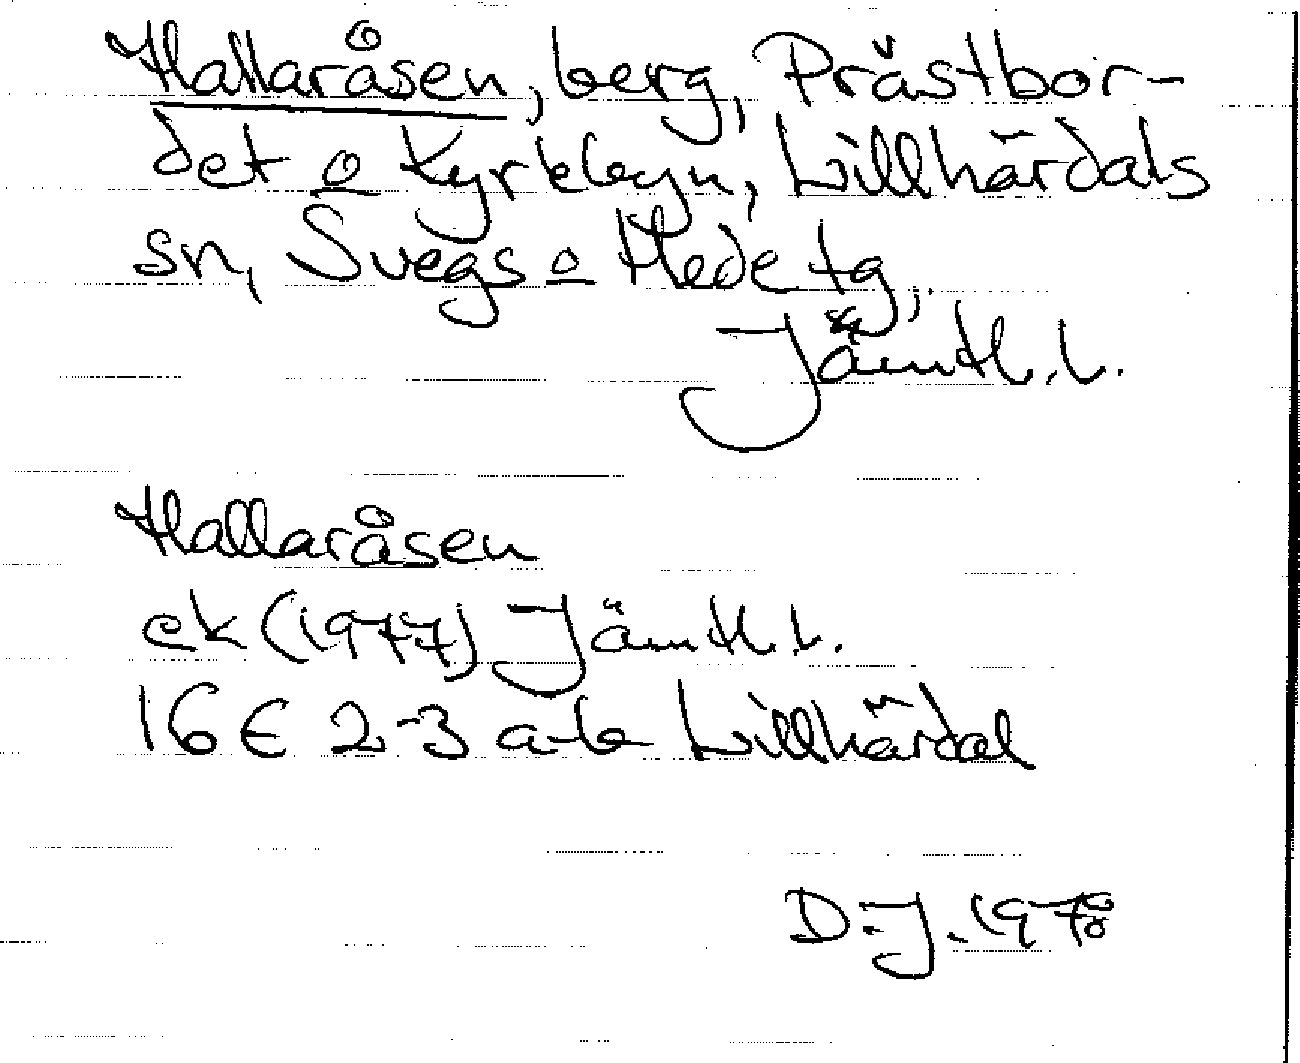 Hallaråsen, berg, Prästbor-
det o Kyrkbyn, Lillhärdals
sn, Svegs o Hede tg,
Jämtl. l.
Hallaråsen
ek (1977) Jämtl. l.
16E 2-3 a-b Lillhärdal
D. J. 1978